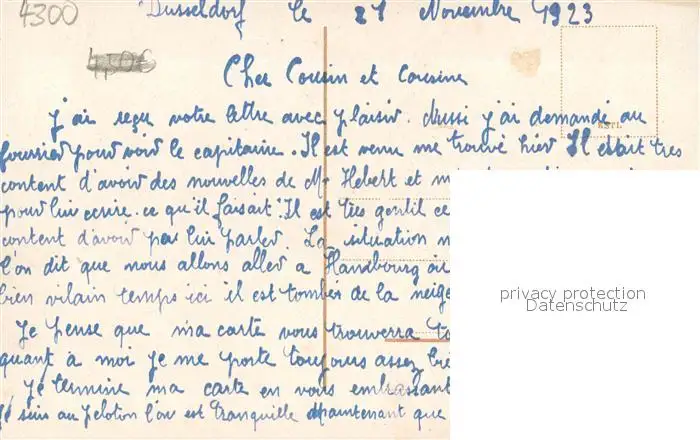 4300
Dusseldorf le 21 Novembre 1923
Cher Cousin et Cousine
J'ai reçu votre lettre avec plaisir. Aussi j'ai demandé au
fourrier pour voir le capitaine. Il est venu me trouvé hier Il était tres
content d'avoir des nouvelles de Mr Hebert et
pour lui ecrire. ce qu'il faisait. Il est très gentil
content d'avoir pu lui parler. La situation
l'on dit que nous allons aller a Handbourg ou
bien vilain temps ici il est tomber de la neige
Je pense que ma carte vous trouverra
quant à moi je me porte toujours assez
Je termine ma carte en vous embrassant
Je suis au peloton l'on est tranquille Maintenant que
privacy protection
Datenschutz